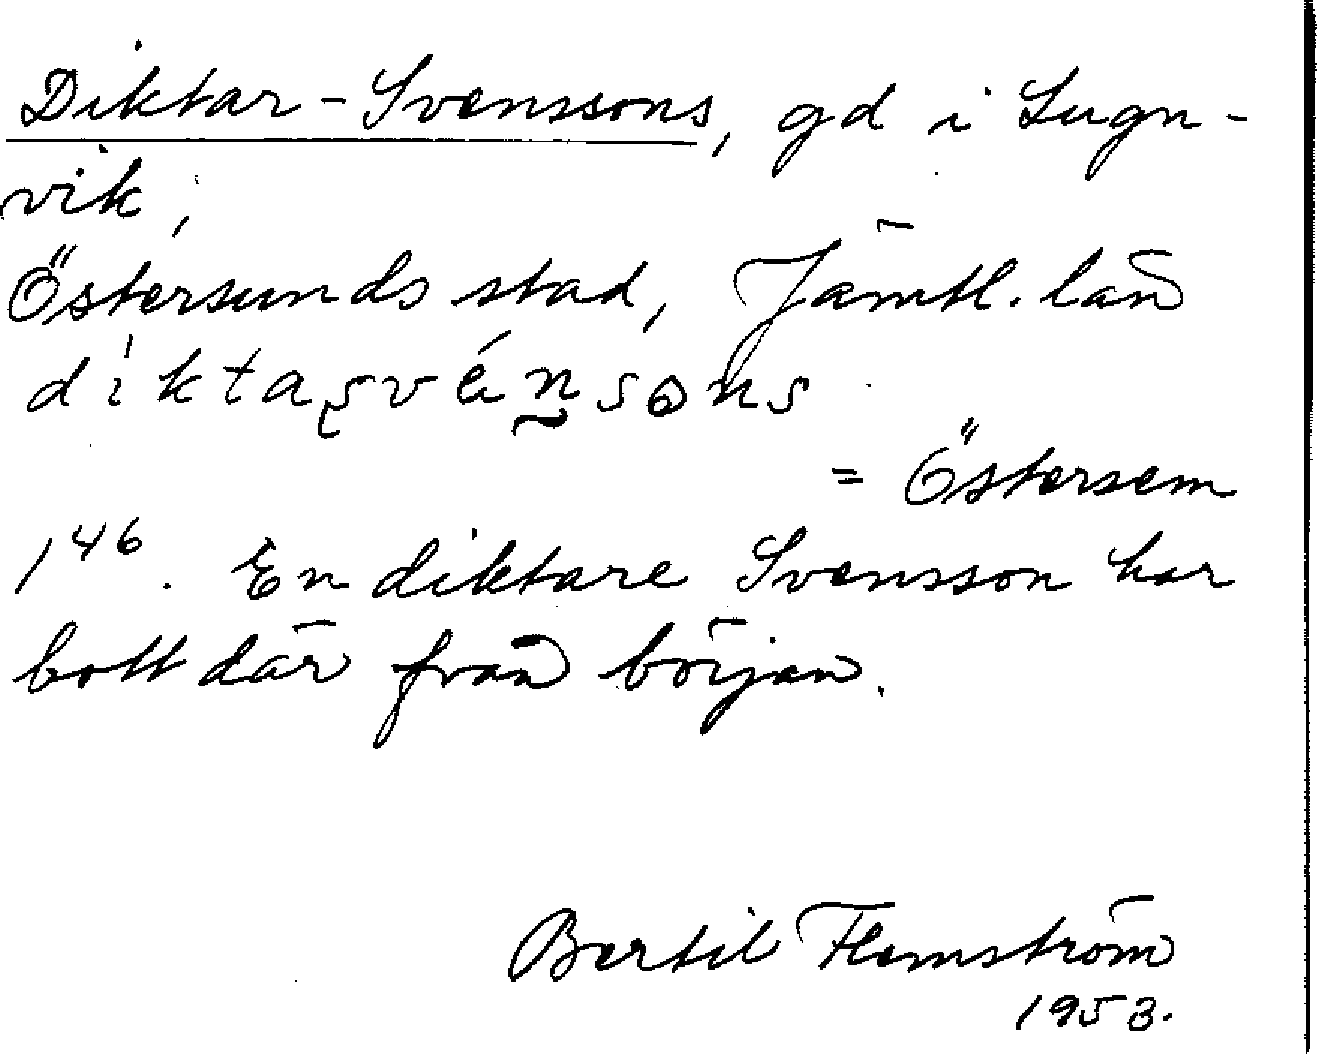 Diktar-Svenssons, gd i Lugn-
vik,
Östersunds stad, Jämtl. län
= Östersem
146. En diktare Svensson har
bott där från början.
Bertil Flemström
1953.